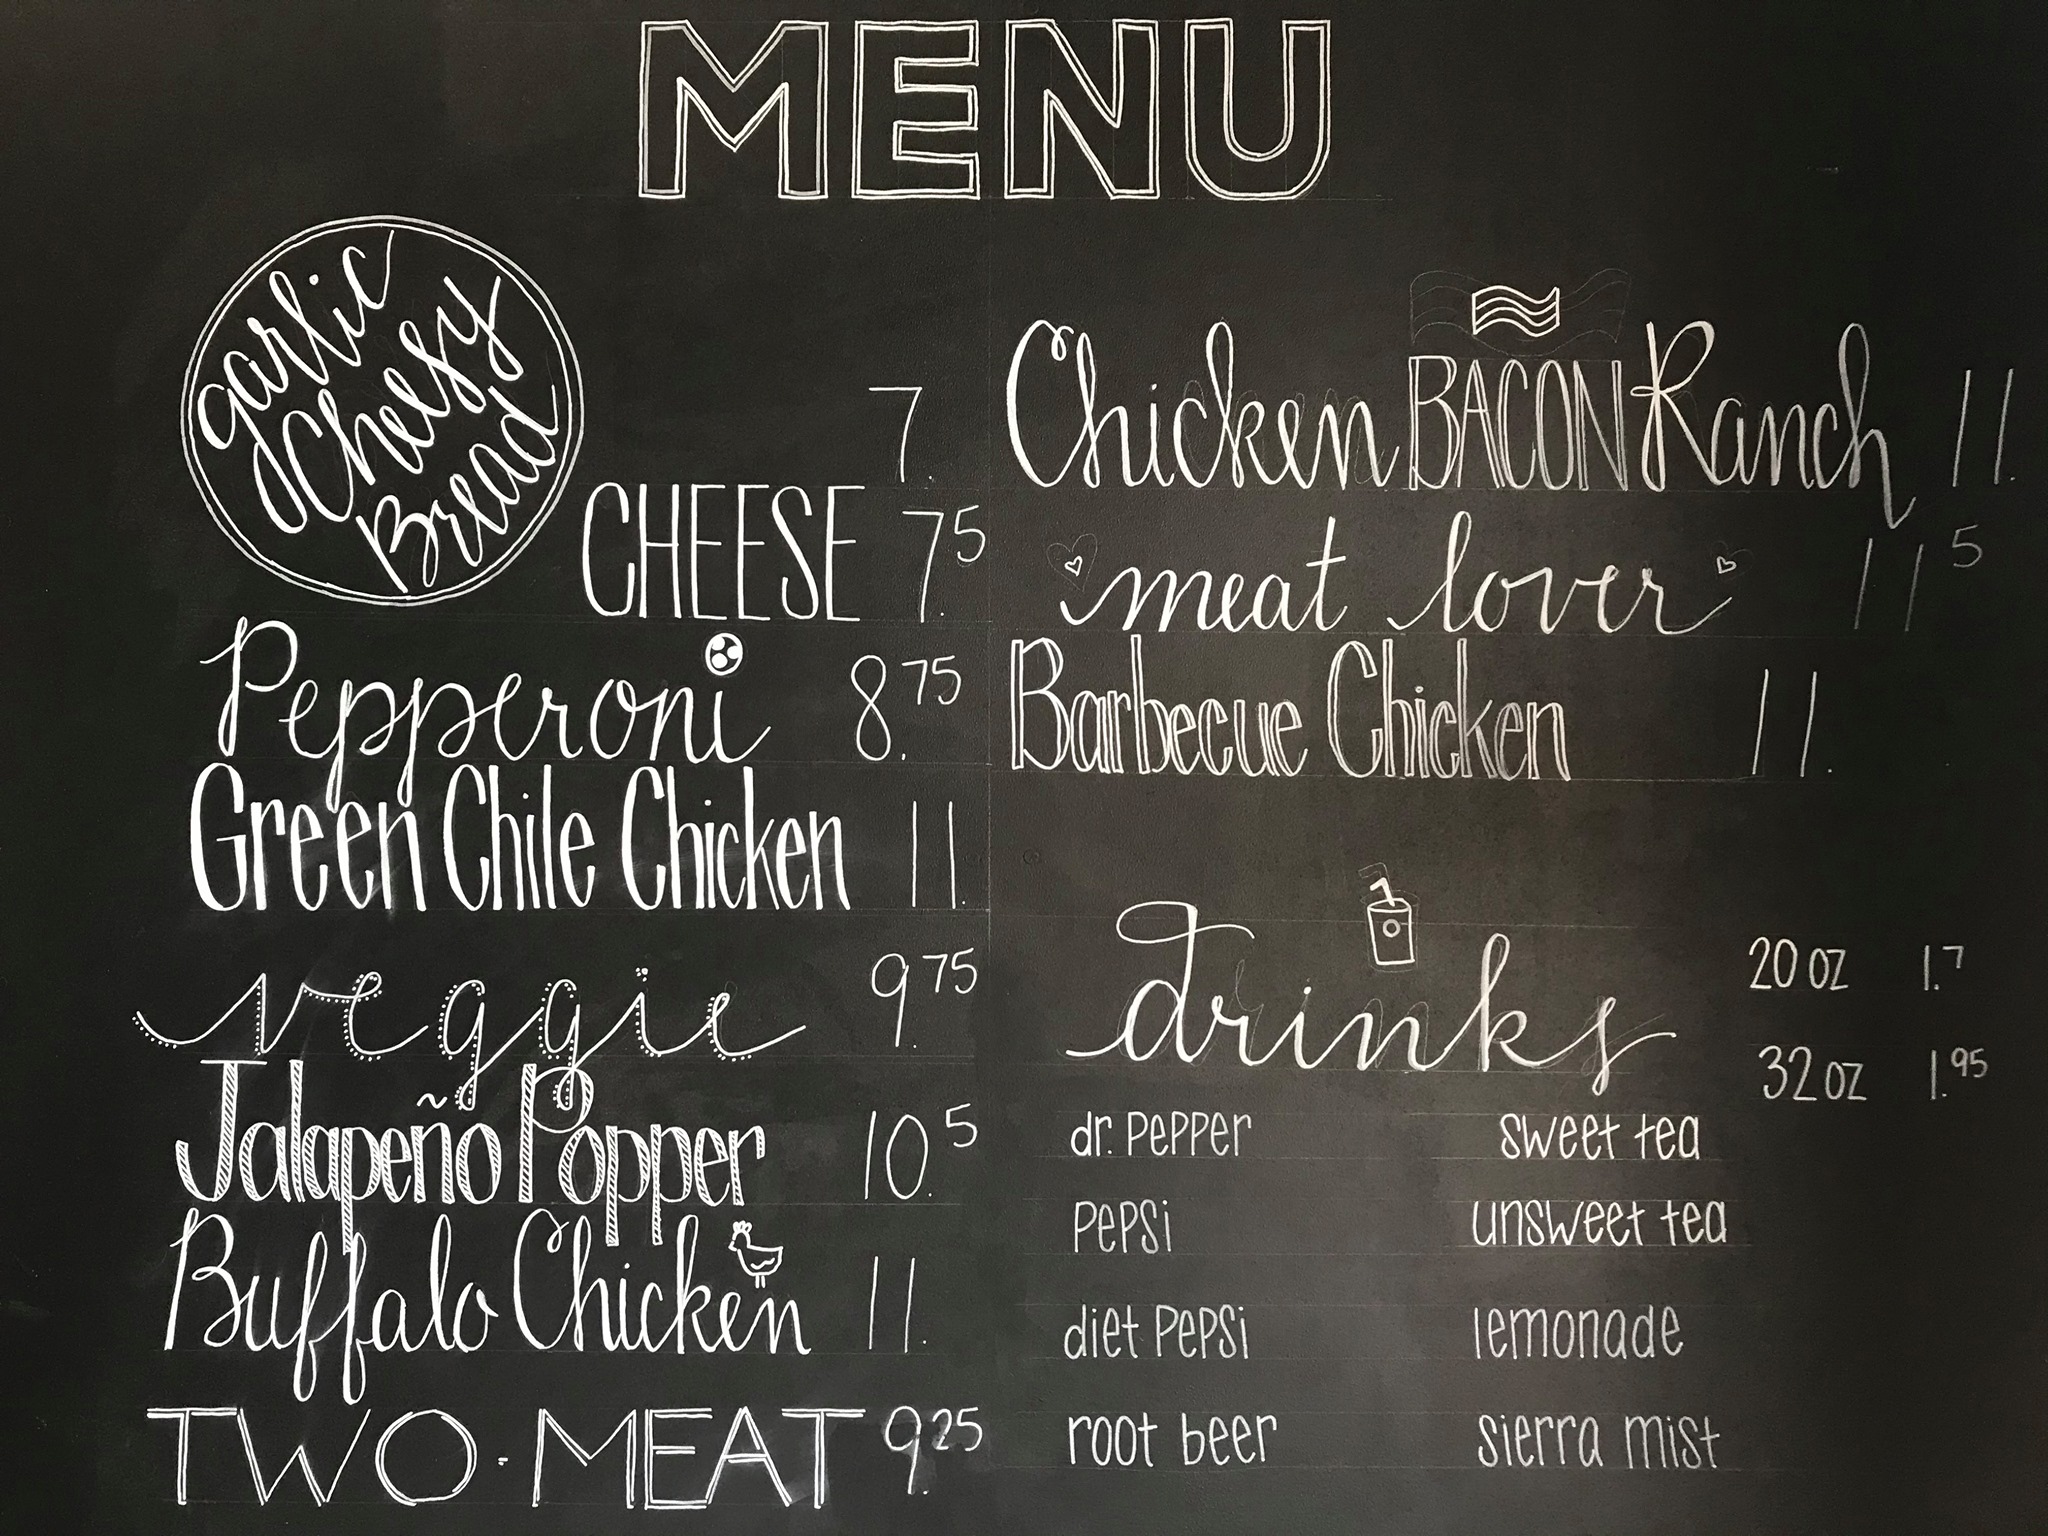 MENU
garlic
Cheesy
Bread 7.
CHEESE 7.5
Pepperoni 8.75
Green Chile Chicken 11.
veggie 9.75
Jalapeño Popper 10.5
Buffalo Chicken 11.
TWO·MEAT 9.25
Chicken BACON Ranch 11.
meat lover 11 5
Barbecue Chicken 11.
drinks
20 oz 1.7
32 oz 1.95
dr. PePPer
PePSi
diet PePSi
root beer
sweet tea
unsweet tea
lemonade
sierra mist